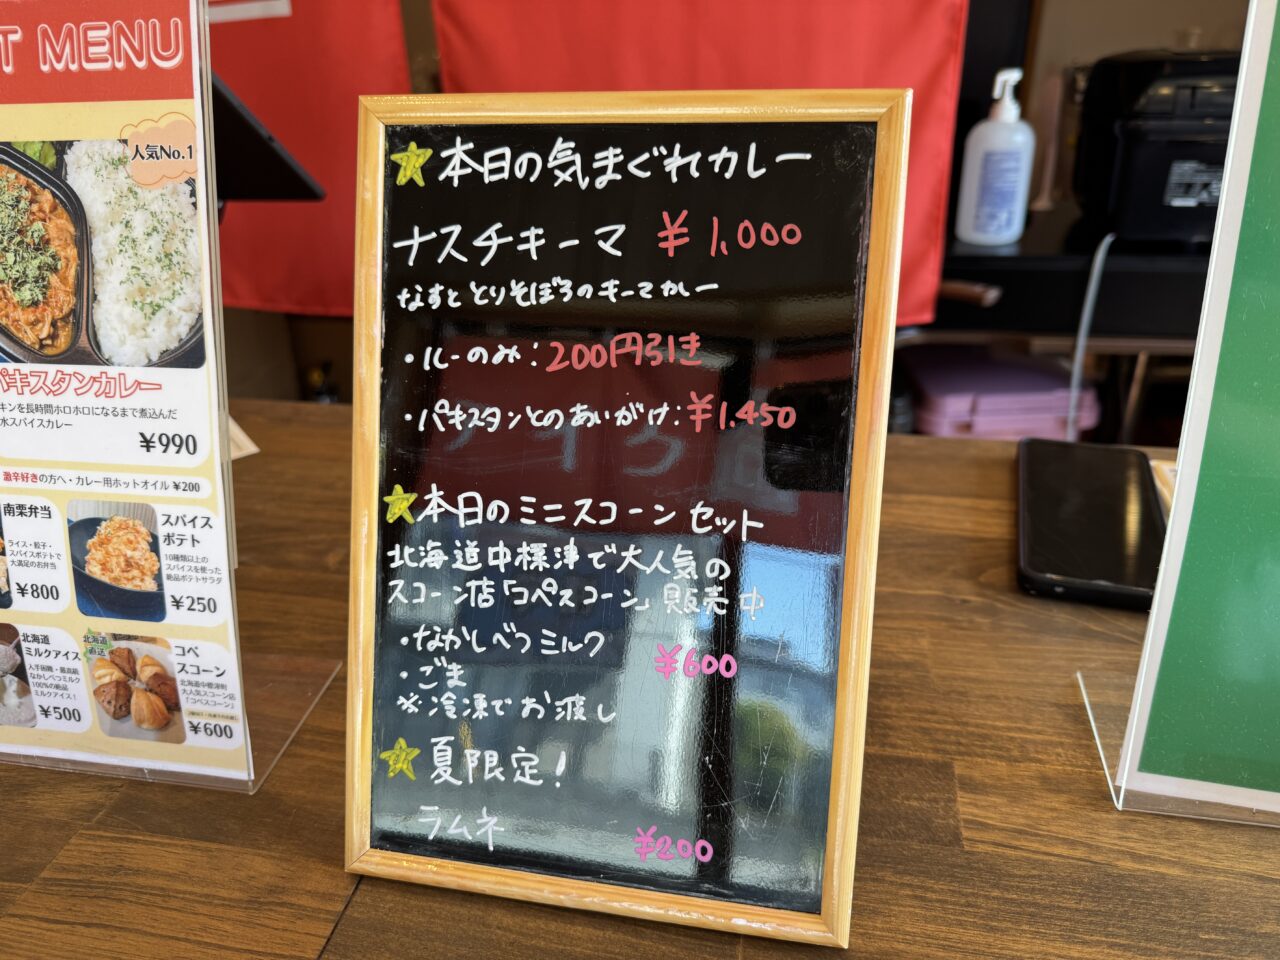 T MENU
人気No.1
パキスタンカレー
キンを長時間ホロホロになるまで煮込んだ
水スパイスカレー
¥990
激辛好きの方へ・カレー用ホットオイル ¥200
南栗弁当
ライス・餃子・
スパイスポテトで
大満足のお弁当
¥800
スパイス
ポテト
10種類以上の
スパイスを使った
絶品ポテトサラダ
¥250
北海道
ミルクアイス
入手困難・最高級
なかしべつミルク
100%の絶品
ミルクアイス!
¥500
北海道
直送
コペ
スコーン
北海道中標津町
大人気スコーン店
「コペスコーン」
¥600
本日の気まぐれカレー
ナスチキーマ ¥1,000
なすと とりそぼろのキーマカレー
・ルーのみ:200円引き
・パキスタンとのあいがけ:¥1.450
本日のミニスコーン セット
北海道中標津で大人気の
スコーン店「コペスコーン」販売中
・なかしべつミルク
・ごま
¥600
※冷凍でお渡し
夏限定!
ラムネ
¥200